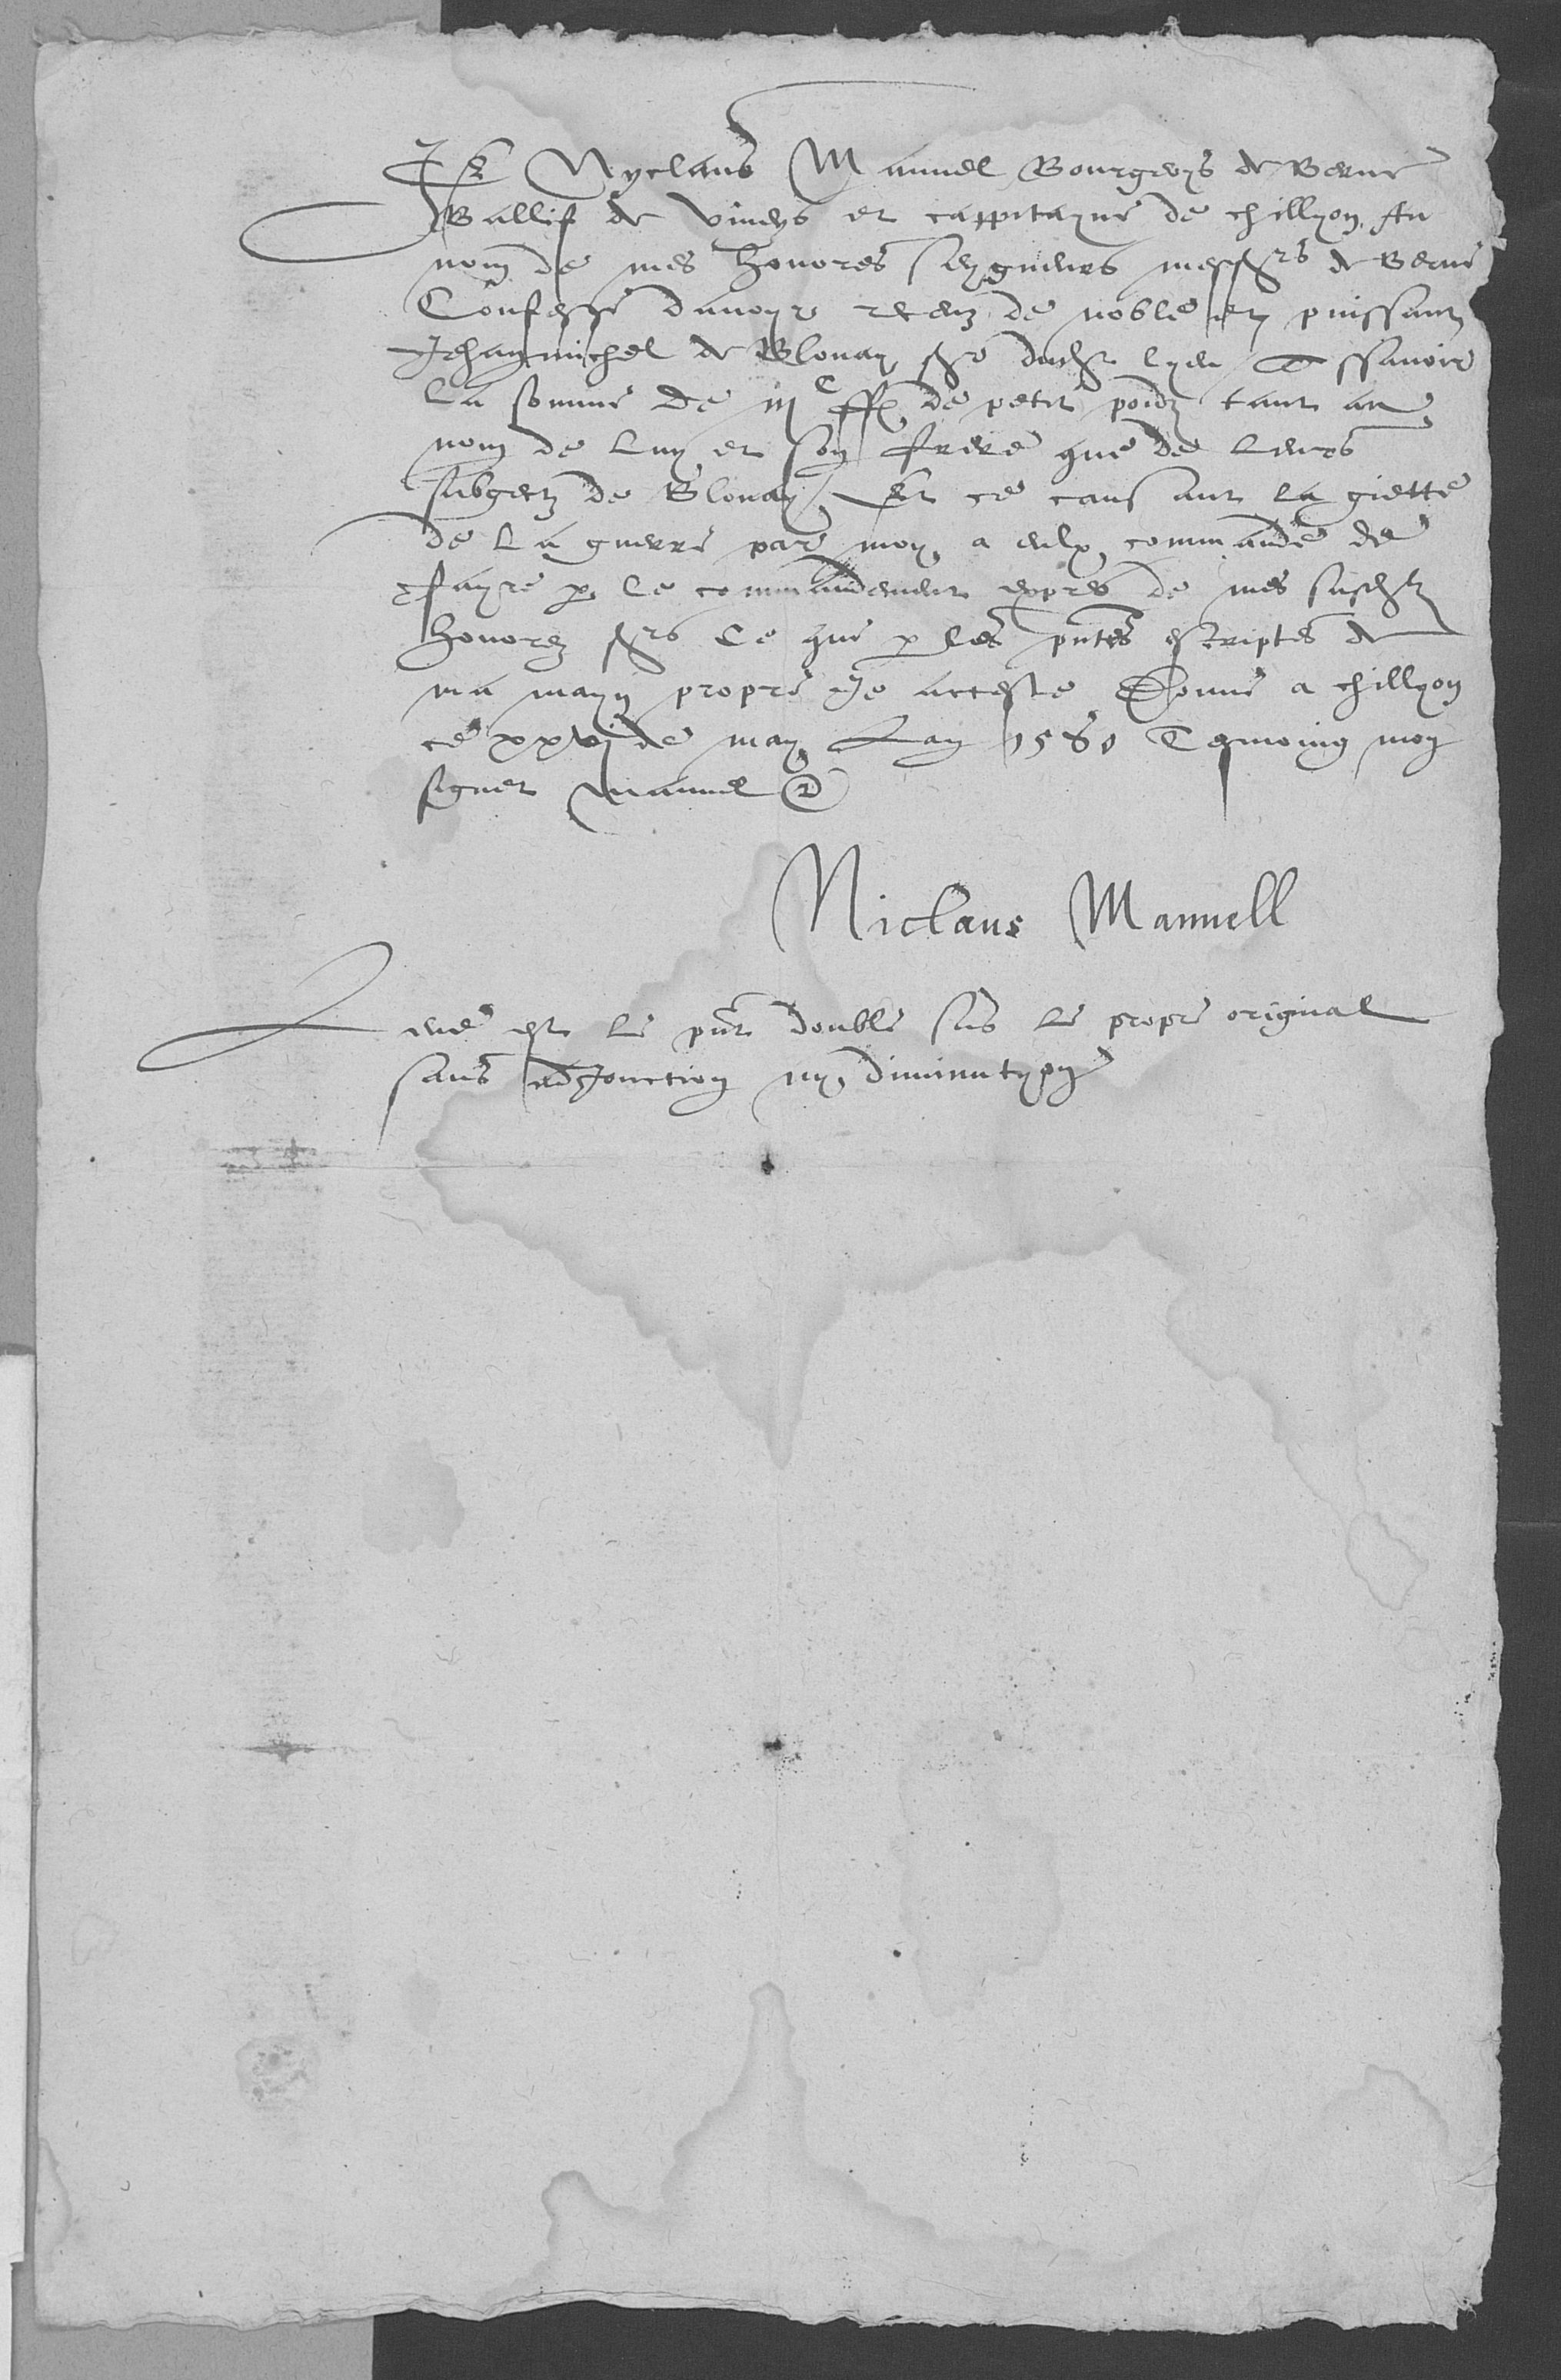 Je Nyclaus Manuel Bourgeoys de Berne
Ballif de Viveys et cappitayne de chillyon Au
nom de mes honores seygneurs messrs de Berne
Confesse davoyr receuz de noble et puissant
Jehan michel de Blonay sgr dudit lyeu Assavoir
La somme de iijc ffl de petit poidz tant au
nom de luy et son frere que de leurs
subgectz de Blonay Et ce causant la giette
de la guerre par moy a eulx commande de
fayre p le commandement expres de mes susdtz
honorez srs Ce que p les pntes escriptes de
ma mayn propre Je atteste Donne a chillyon
ce xxvj de may Lan 1580 Tesmoing moy
signet Manuel
Niclaus Manuell
Leve est le pnt double sus le propre original
sans adjonction ny diminutyon